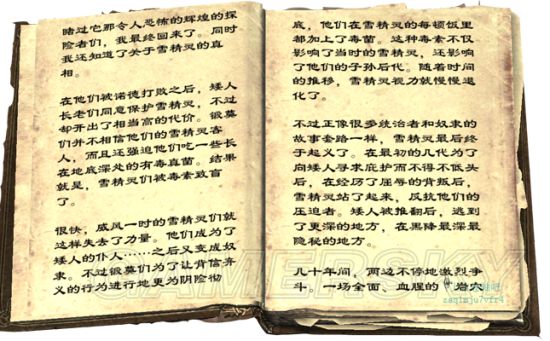 睹过它那令人恐怖的辉煌的探
险者们，我最终回来了。同时
我还知道了关于雪精灵的真
相。
在他们被诺德打败之后，矮人
长老们同意保护雪精灵，不过
却开出了相当高的代价。锻莫
们并不相信他们的雪精灵客
人，而且还强迫他们吃一些长
在地底深处的有毒真菌。结果
就是，雪精灵们被毒素致盲
了。
很快，威风一时的雪精灵们就
这样失去了力量。他们成为了
矮人的仆人……之后又变成奴
隶。不过锻莫们为了让背信弃
义的行为进行地更为阴险彻
底，他们在雪精灵的每顿饭里
都加上了毒菌。这种毒素不仅
影响了当时的雪精灵，还影响
了他们的子孙后代。随着时间
的推移，雪精灵视力就慢慢退
化了。
不过正像很多统治者和奴隶的
故事套路一样，雪精灵最后终
于起义了。在最初的几代为了
向矮人寻求庇护而不得不低头
后，在经历了屈辱的背叛后，
雪精灵站了起来，反抗他们的
压迫者。矮人被推翻后，逃到
了更深的地方，在黑降最深最
隐秘的地方。
几十年间，两边不停地激烈争
斗。一场全面、血腥的“岩穴
GAMERSKY
zaqimju7vfr4